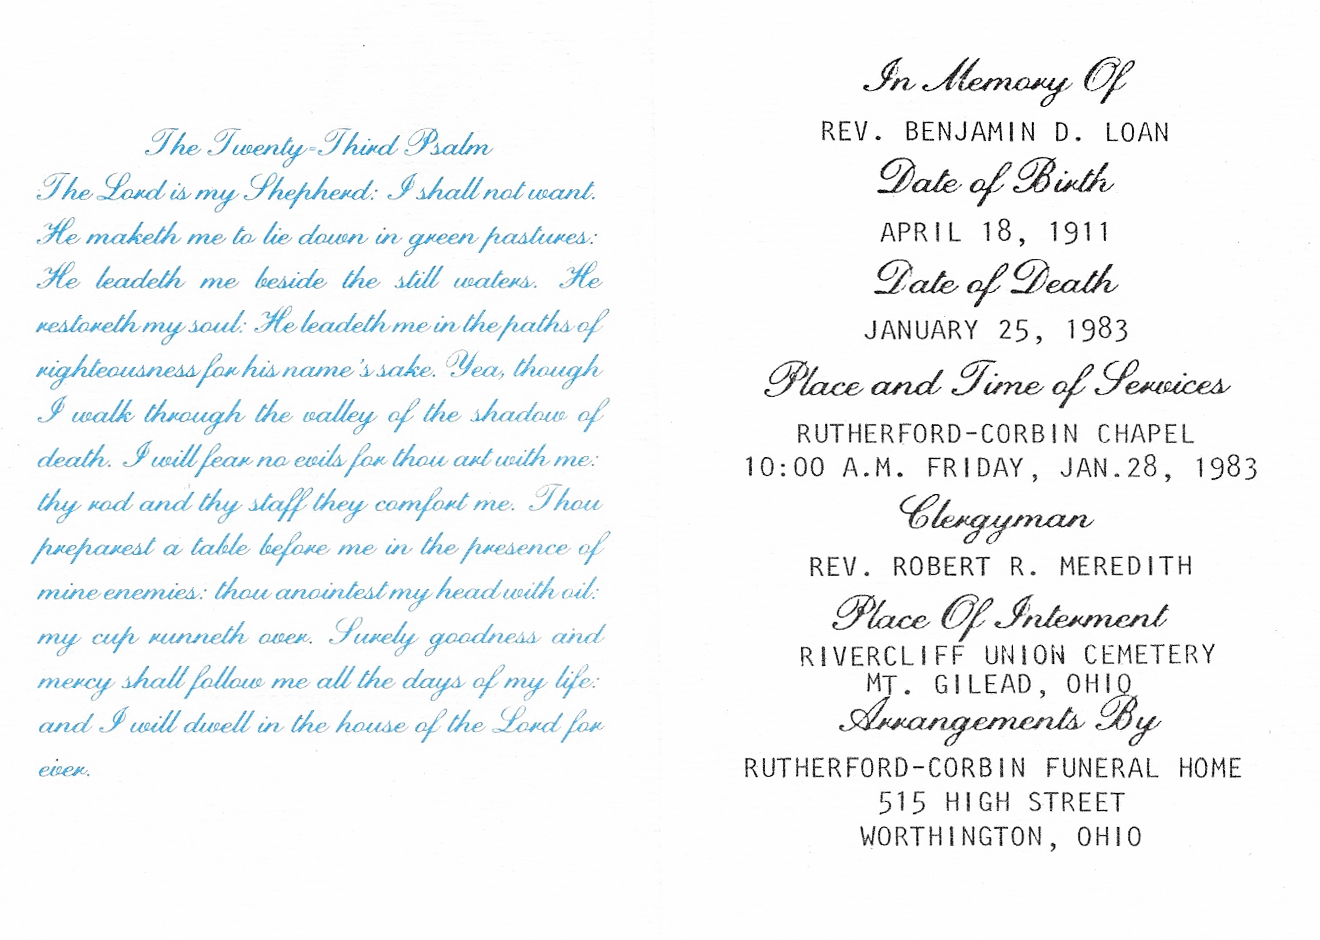 The Twenty-Third Psalm
The Lord is my Shepherd: I shall not want.
He maketh me to lie down in green pastures:
He leadeth me beside the still waters. He
restoreth my soul: He leadeth me in the paths of
righteousness for his name's sake. Yea, though
I walk through the valley of the shadow of
death. I will fear no evils for thou art with me:
thy rod and thy staff they comfort me. Thou
preparest a table before me in the presence of
mine enemies: thou anointest my head with oil:
my cup runneth over. Surely goodness and
mercy shall follow me all the days of my life:
and I will dwell in the house of the Lord for
ever.
In Memory Of
REV. BENJAMIN D. LOAN
Date of Birth
APRIL 18, 1911
Date of Death
JANUARY 25, 1983
Place and Time of Services
RUTHERFORD-CORBIN CHAPEL
10:00 A.M. FRIDAY, JAN.28, 1983
Clergyman
REV. ROBERT R. MEREDITH
Place Of Interment
RIVERCLIFF UNION CEMETERY
MT. GILEAD, OHIO
Arrangements By
RUTHERFORD-CORBIN FUNERAL HOME
515 HIGH STREET
WORTHINGTON, OHIO